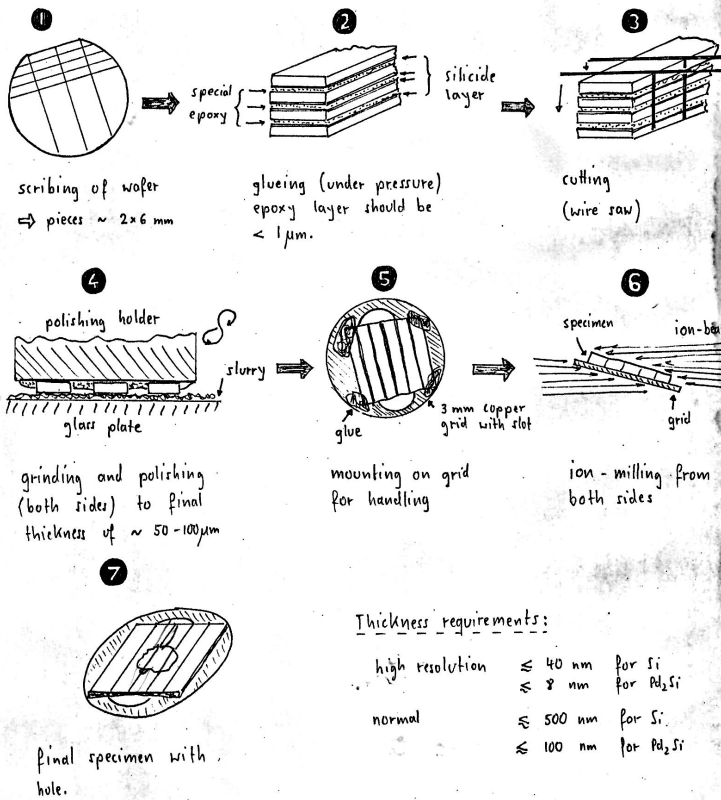 1
scribing of wafer
⇨ pieces ~ 2×6 mm
2
special
epoxy
silicide
layer
glueing (under pressure)
epoxy layer should be
< 1 μm.
3
cutting
(wire saw)
4
polishing holder
slurry
glass plate
grinding and polishing
(both sides) to final
thickness of ~ 50-100μm
5
glue
3 mm copper
grid with slot
mounting on grid
for handling
6
specimen
ion-bea
grid
ion - milling from
both sides
7
final specimen with
hole.
Thickness requirements:
high resolution ≲ 40 nm for Si
≲ 8 nm for Pd₂Si
normal ≲ 500 nm for Si.
≲ 100 nm for Pd₂Si